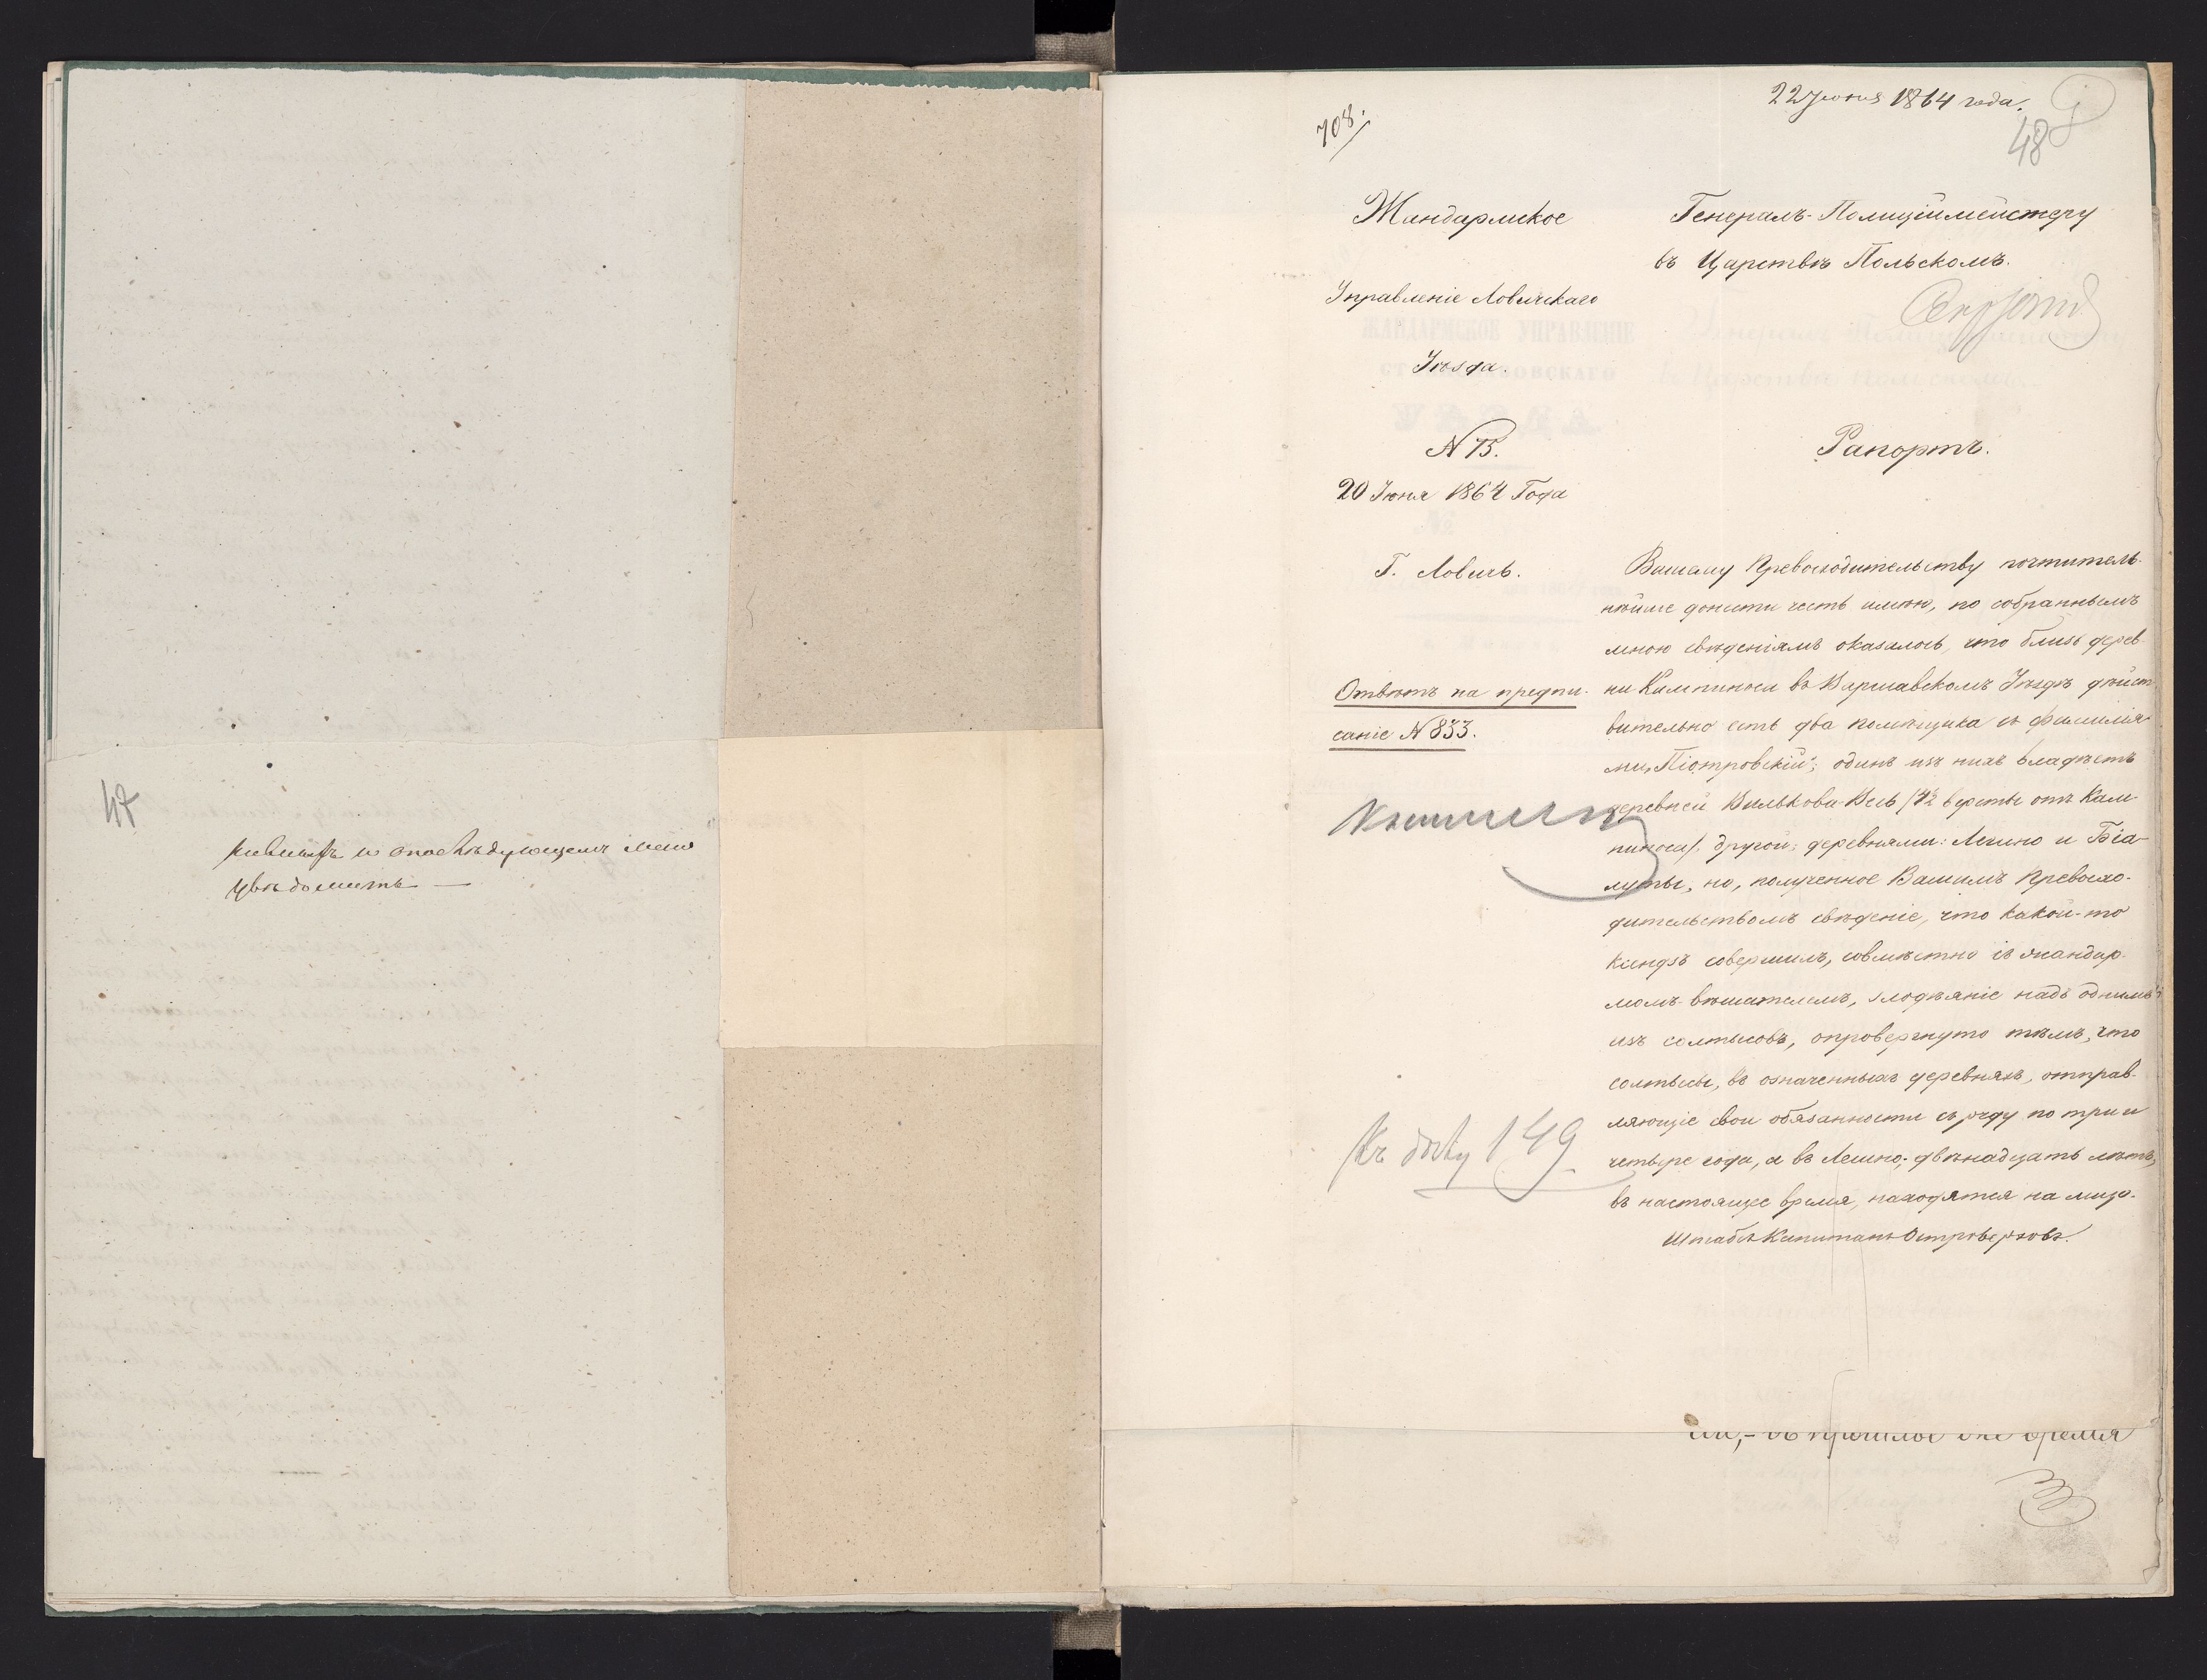 47
и о последующемъ меня
увѣдомить —
22 Іюня 1864 года.
48
708.
Жандармское
Управленіе Ловичскаго
Уѣзда.
N 75.
20 Іюня 1864 Года
Г. Ловичь.
Отвѣтъ на предпи-
саніе N 833.
Къ дѣлу 149
Генералъ-Полиціймейстеру
въ Царствѣ Польскомъ.
Рапортъ.
Вашему Превосходительству почтитель-
нѣйше донести честь имѣю, по собраннымъ
мною свѣденіямъ оказалось, что близь дерев-
ни Кампиноса въ Варшавскомъ Уѣздѣ дѣйст-
вительно есть два помѣщика съ фамилія-
ми „Піотровскій“; одинъ изъ нихъ владѣетъ
деревней Вилькова-Весь /4½ версты отъ Кам-
пиноса/, другой; деревнями: Лешно и Біа-
луты, но, полученное Вашимъ Превосхо-
дительствомъ свѣденіе, что какой-то
ксендзъ совершилъ, совмѣстно съ жандар-
момъ-вѣшателемъ, злодѣяніе надъ однимъ
изъ солтысовъ, опровергнуто тѣмъ, что
солтысы, въ означенныхъ деревняхъ, отправ-
ляющіе свои обязанности съ ряду по три и
четыре года, а въ Лешно; двѣнадцать лѣтъ,
въ настоящее время, находятся на лицо.
Штабсъ-Капитанъ Островерховъ.